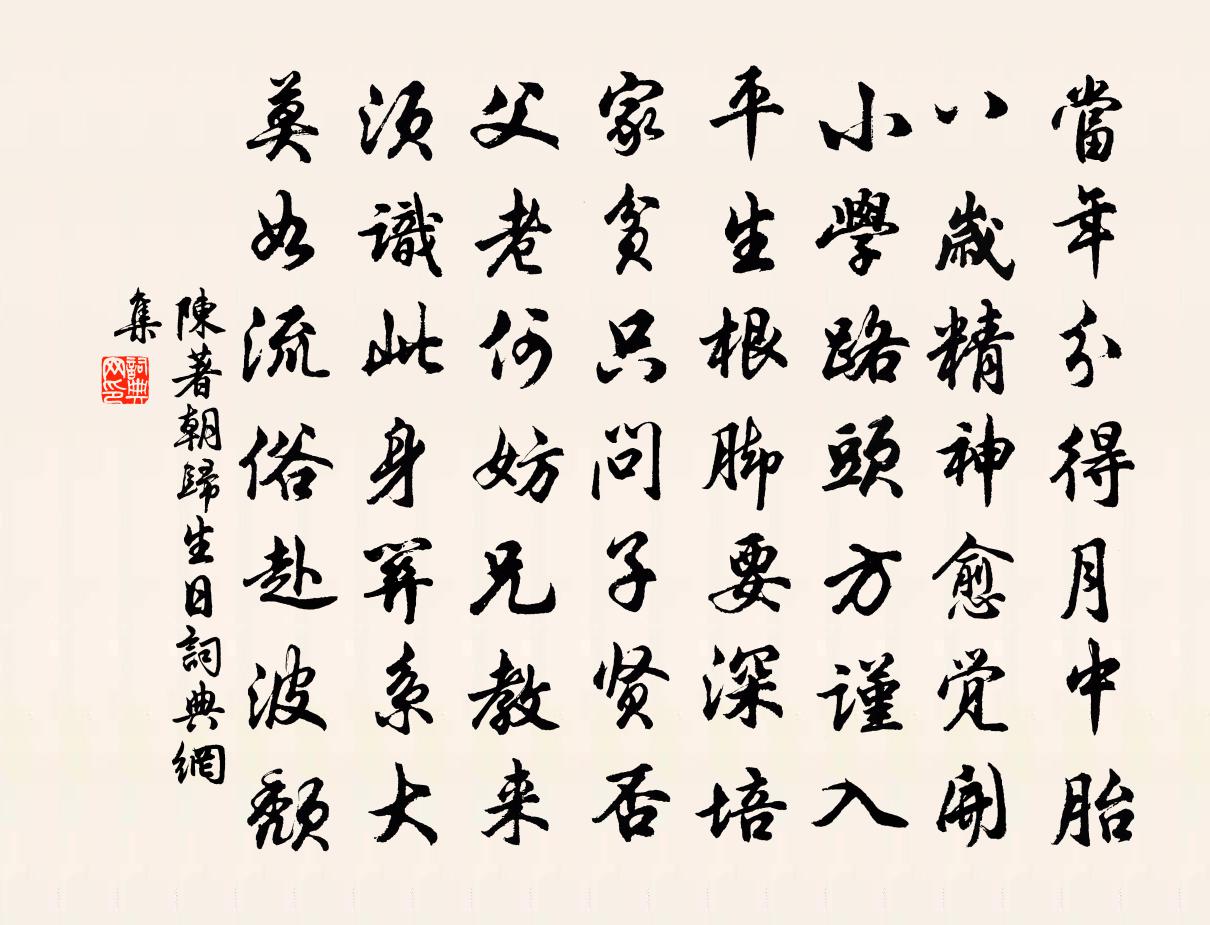 當年分得月中胎
八歲精神愈覚開
小學路頭方謹入
平生根脚要深培
家貧只問子贤否
父老何妨兄教来
須識此身筭系大
莫如流俗赴波頹
陳著朝歸生日詞典網
集
詞典
网印